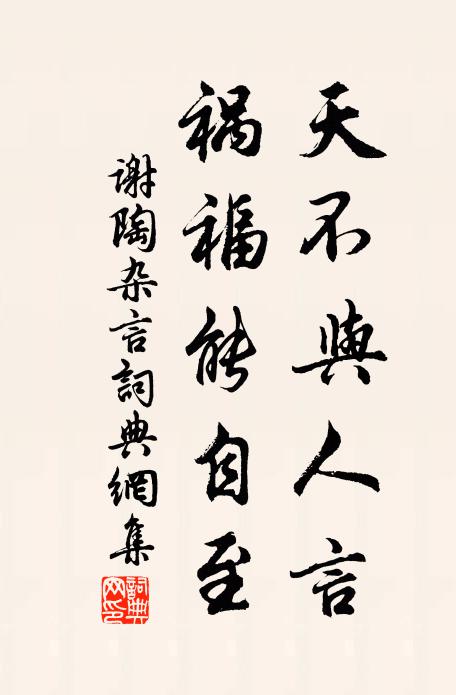 天不與人言
禍福能自至
谢陶杂言詞典網集
詞典網印